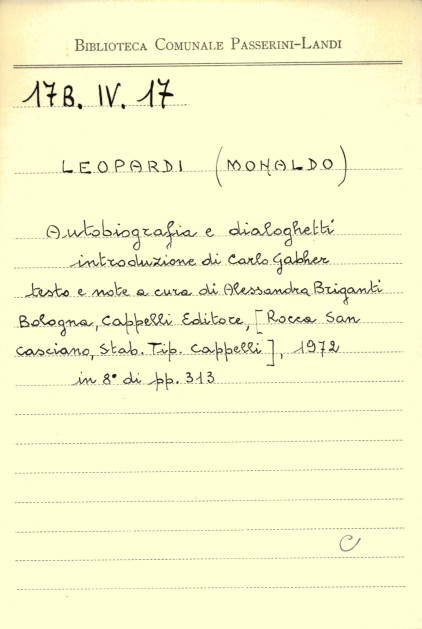 BIBLIOTECA COMUNALE PASSERINI-LANDI
17B. IV. 17
LEOPARDI (MONALDO)
Autobiografia e dialoghetti
introduzione di Carlo Gabher
testo e note a cura di Alessandra Briganti
Bologna, Cappelli Editore, [Rocca San
Casciano, Stab. Tip. Cappelli], 1972
in 8° di pp. 313
C